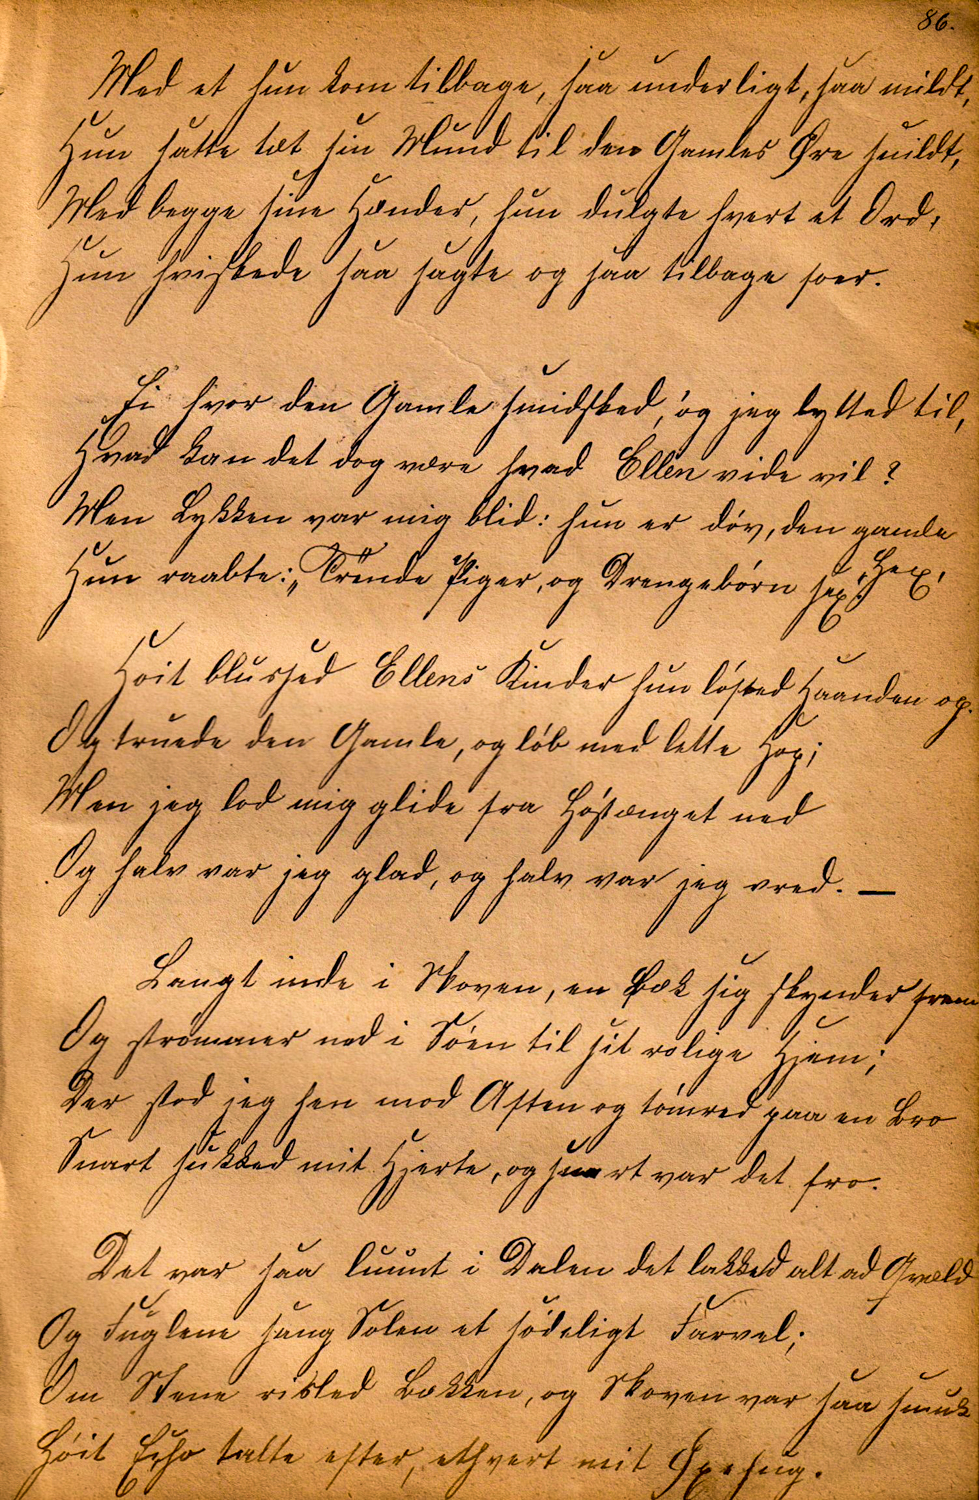 86.
Med et hun kom tilbage, saa underligt, saa mildt,
Hun satte tæt sin Mund til den Gamles Øre snildt,
Med begge sine Hænder, hun dulgte hvert et Ord,
Hun hviskede saa sagte og saa tilbage foer.
Ei hvor den Gamle smidsked, og jeg lytted til,
Hvad kan det dog være hvad Ellen vide vil?
Men Lykken var mig blid: hun er døv, den gamle Hex,
Hun raabte: „Trende Piger, og Drengebørn sex!"
Høit blussed Ellens Kinder hun løfted Haanden op.
Og truede den Gamle, og løb med lette Hop;
Men jeg lod mig glide fra Høstænget ned
Og halv var jeg glad, og halv var jeg vred. —
Langt inde i Skoven, en Bæk sig skynder frem
Og strømmer ned i Søen til sit rolige Hjem;
Der stod jeg hen mod Aften og tømred paa en Bro
Snart sukked mit Hjerte, og snart var det fro.
Det var saa luunt i Dalen det lakked alt ad Qvæld
Og Fuglene sang Solen et sødeligt Farvel;
Om Stene risled Bækken, og Skoven var saa smuk
Høit Echo talte efter, ethvert mit Øxehug.